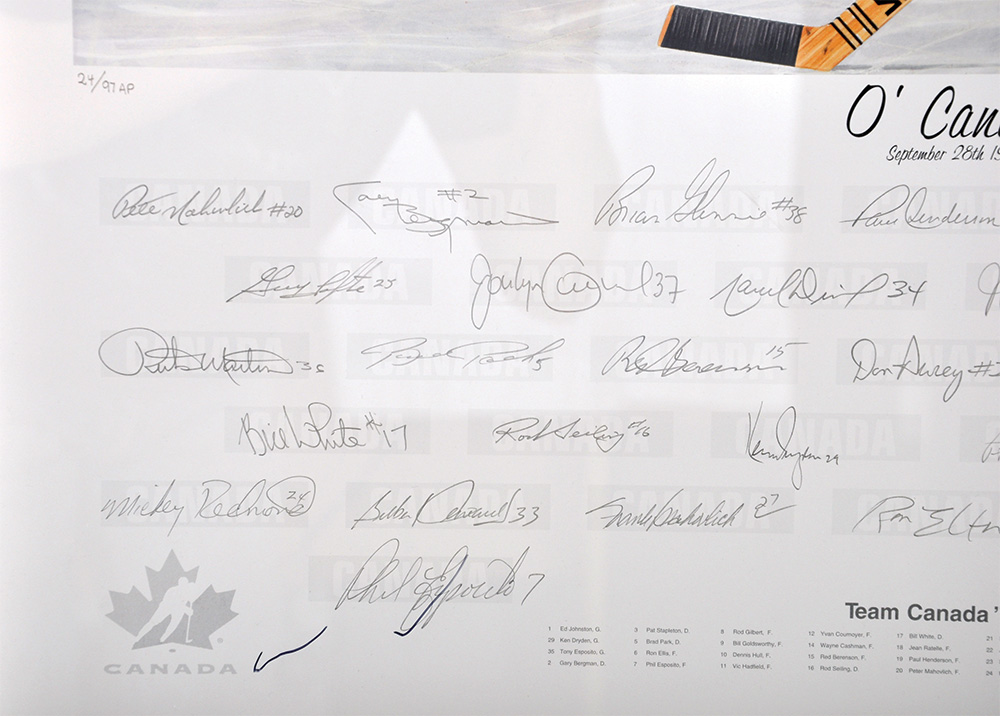 24/97 AP
O' Can
September 28th 19
Pete Mahovlich #20 Gary Bergman #2 Brian Glennie #38 Paul Henderson
Guy Lapointe 25 Jocelyn Guevremont 37 Marcel Dionne 34
Rick Martin 36 Brad Park 5 Red Berenson 15 Don Awrey #2
Bill White #17 Rod Seiling #16 Ken Dryden 29
Mickey Redmond 24 Bill 33 Frank Mahovlich 27 Ron Ellis
Phil Esposito 7
CANADA
Team Canada '
1 Ed Johnston, G. 3 Pat Stapleton, D. 8 Rod Gilbert, F. 12 Yvan Cournoyer, F. 17 Bill White, D. 21
29 Ken Dryden, G. 5 Brad Park, D. 9 Bill Goldsworthy, F. 14 Wayne Cashman, F. 18 Jean Ratelle, F. 22
35 Tony Esposito, G. 6 Ron Ellis, F. 10 Dennis Hull, F. 15 Red Berenson, F. 19 Paul Henderson, F. 23
2 Gary Bergman, D. 7 Phil Esposito, F 11 Vic Hadfield, F. 16 Rod Seiling, D. 20 Peter Mahovlich, F. 24